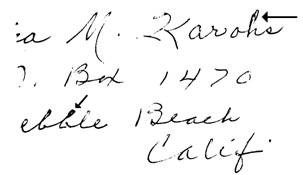 ia M. Karohs
O. Box 1470
ebble Beach
Calif.